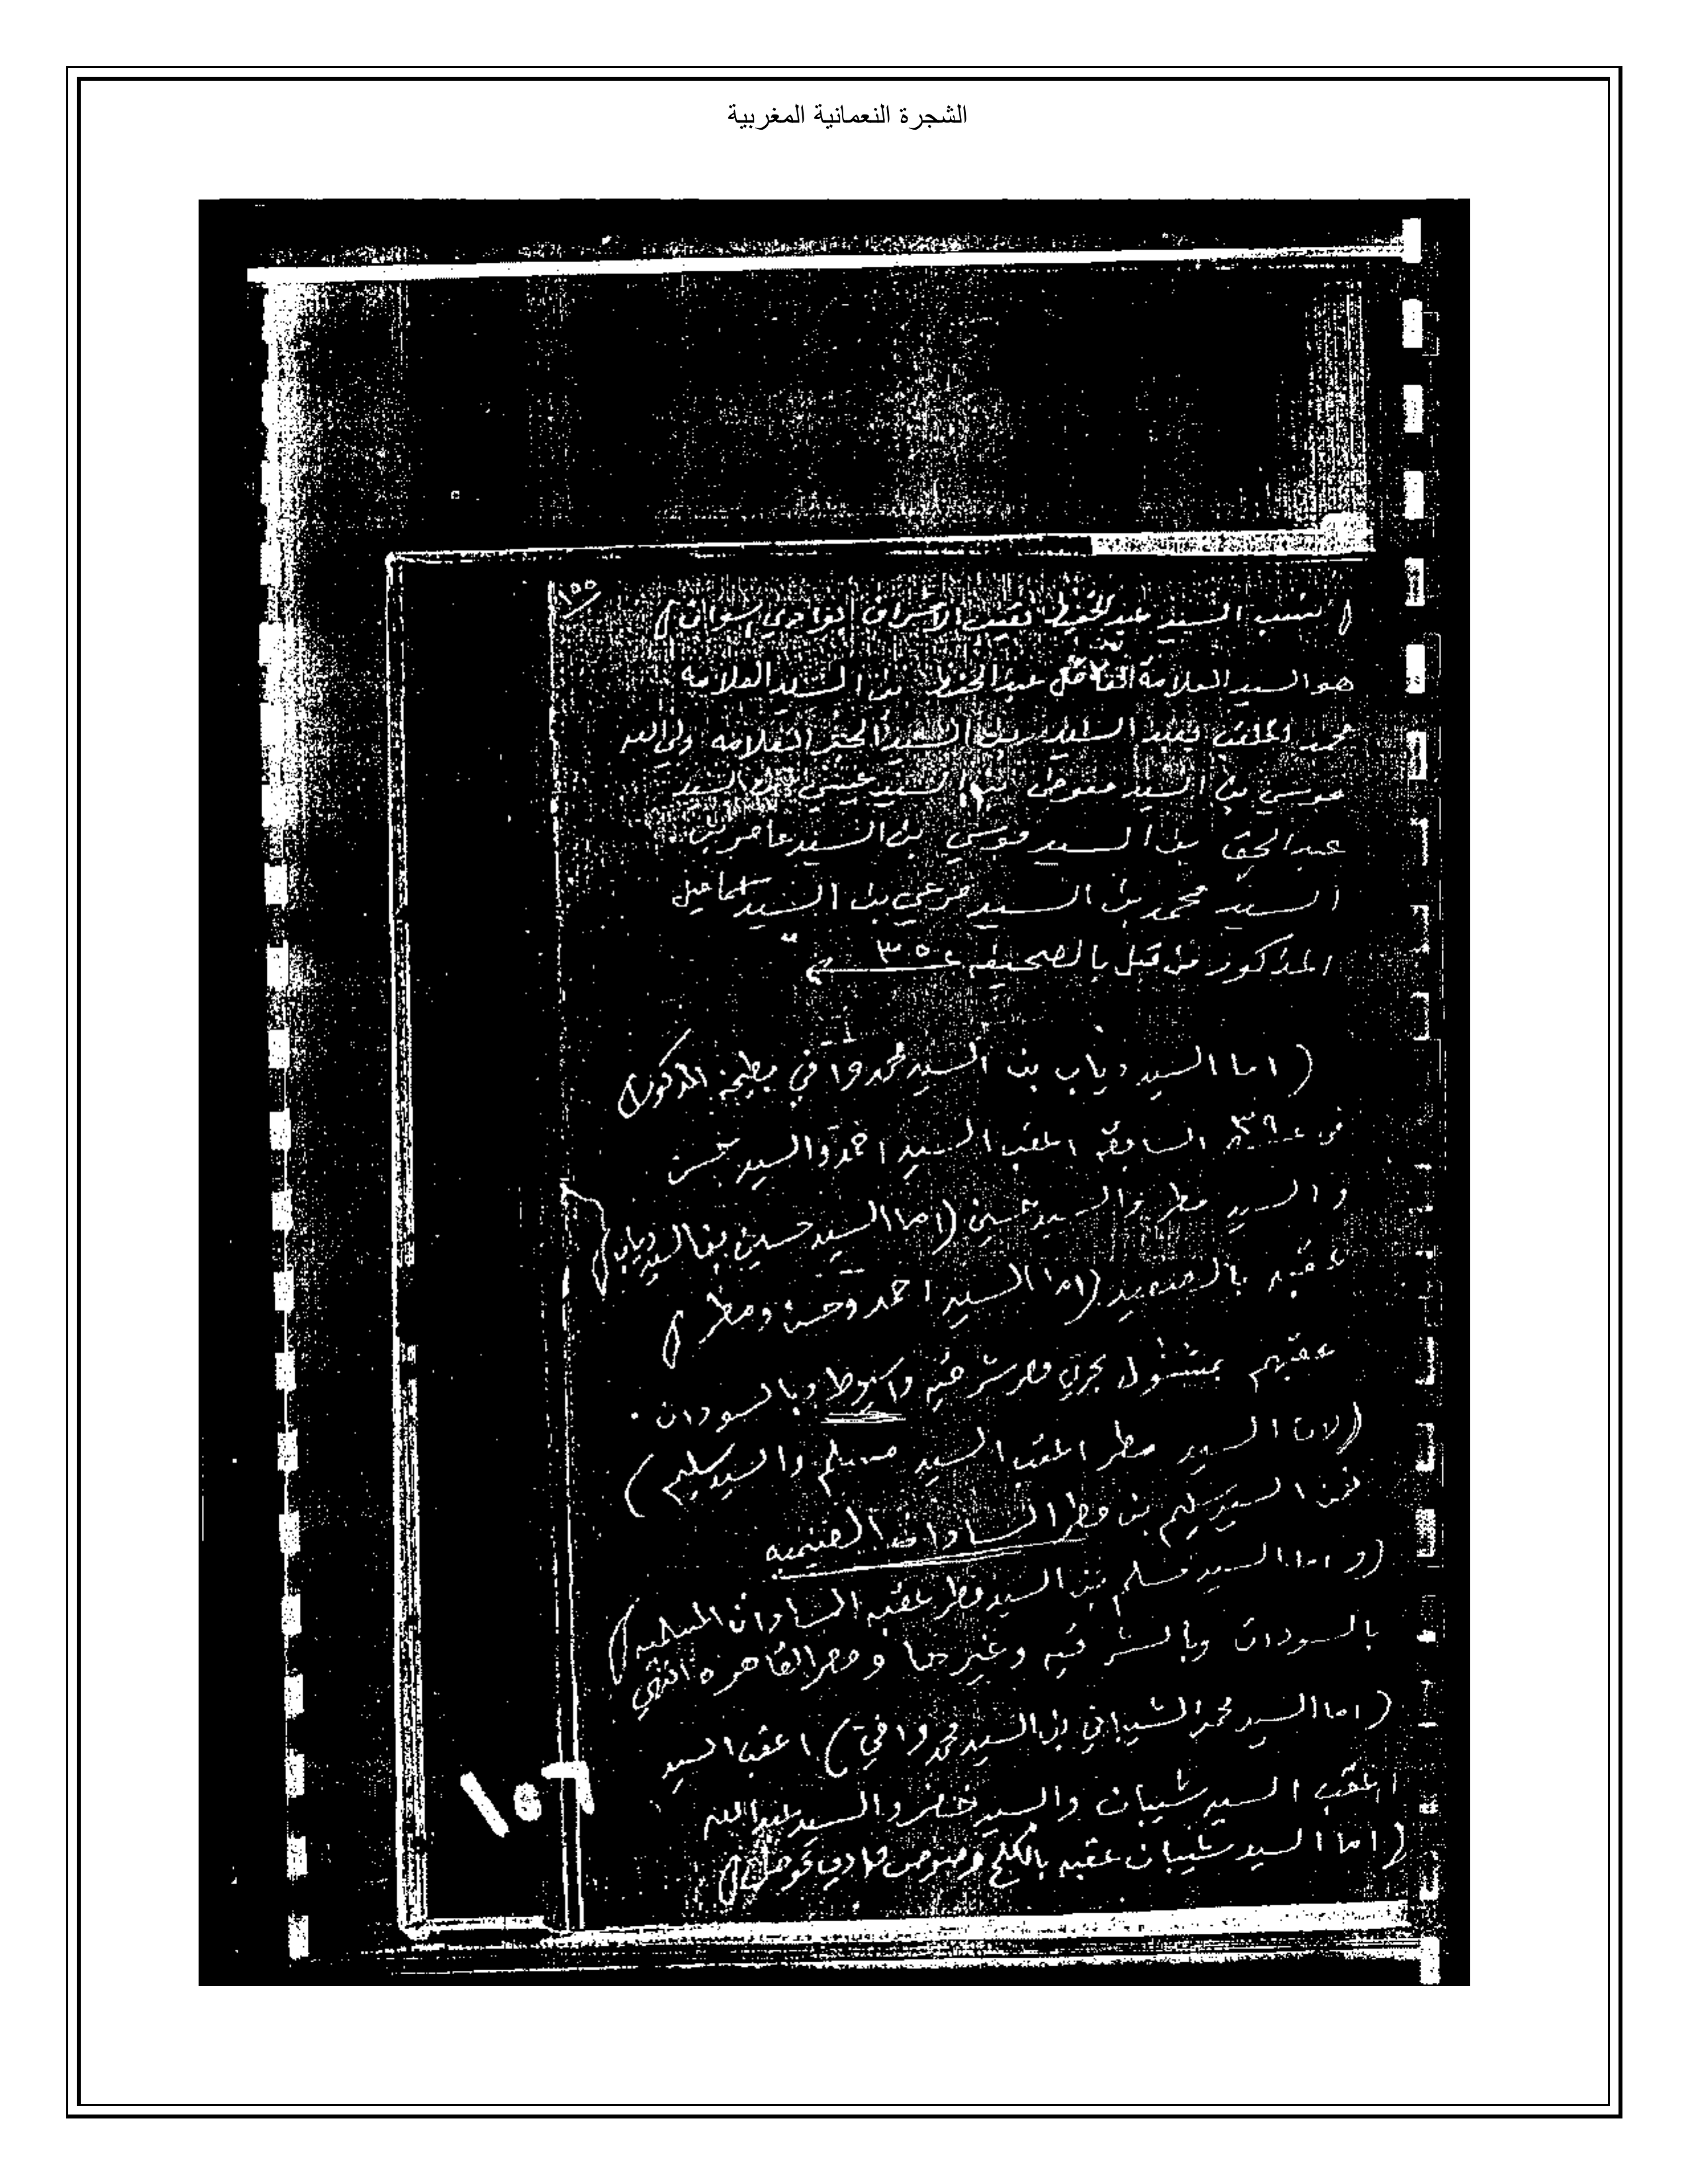 الشجرة النعمانية المغربية
١٥٥
( نسب السيد عبد الحفيظ نقيب الاشراف
هو السيد العلامة الفاضل عبد الحفيظ بن السيد العلامه
محمد الملقب بن السيد الحبر العلامه ولي الله
موسي بن السيد معوض بن السيد عيسي بن السيد
عبد الحق بن السيد موسي بن السيد عامر بن
السيد محمد بن السيد مرعي بن السيد اسماعيل
المذكور من قبل بالصحيفه
( اما السيد دياب بن السيد محمد وافي بطيحه المذكور )
في السابقه اعقب السيد احمد والسيد حسن
والسيد مطر والسيد حسين ( اما السيد حسين بن السيد دياب )
عقبه بالصعيد ( اما السيد احمد وحسن ومطر )
عقبهم بمشتول بحري مصر شرقيه واسيوط وبالسودان .
( لان السيد مطر اعقب السيد مسلم والسيد سليم )
فمن السيد سليم بن مطر السادات
( و اما السيد مسلم بن السيد مطر عقبه السادات المسلميه )
بالسودان وبالشرقيه وغيرها ومصر القاهره انتهي
( اما السيد محمد الشيباني بن السيد محمد وافي ) اعقب السيد
اعقب السيد شيبان والسيد خضر والسيد عبد الله
( اما السيد شيبان عقبه بالكلح
١٥٦